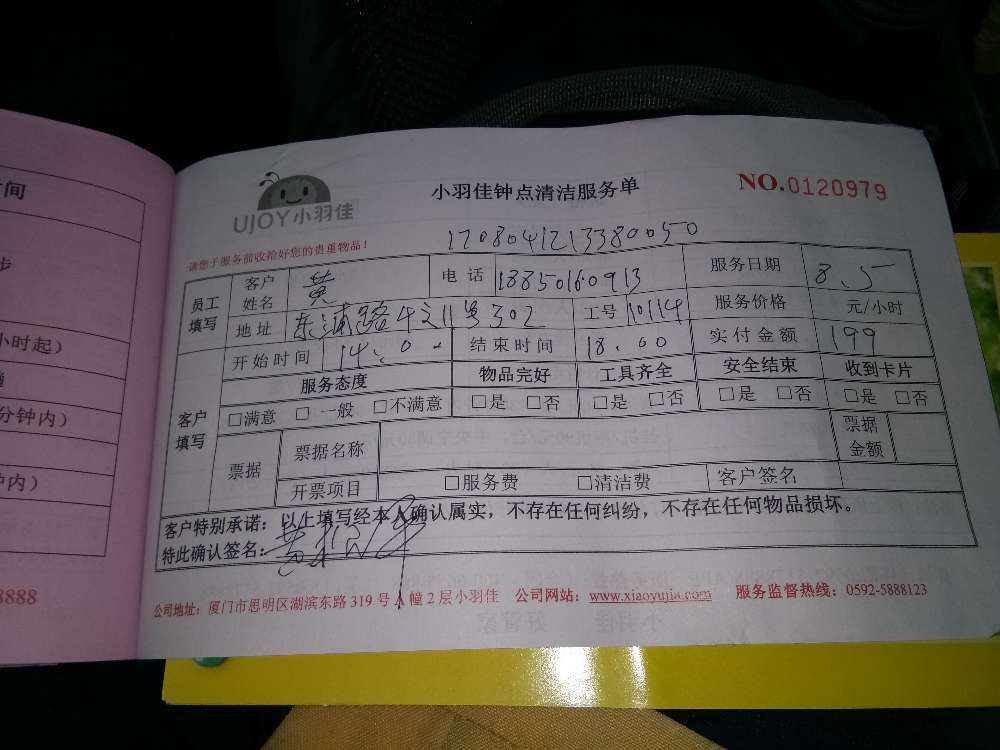 间
步
小时起)
通
分钟内)
钟内)
8888
UJOY小羽佳
小羽佳钟点清洁服务单
NO.0120979
请您于服务前收拾好您的贵重物品!
1208041213380050
员工填写
客户姓名 黄 电话 18850160913 服务日期 8.5
地址 工号 10114 服务价格 元/小时
开始时间 14:00 结束时间 18:00 实付金额 199
客户填写
服务态度 物品完好 工具齐全 安全结束 收到卡片
□满意 □一般 □不满意 □是 □否 □是 □否 □是 □否 □是 □否
票据 票据名称 票据金额
开票项目 □服务费 □清洁费 客户签名
客户特别承诺:以上填写经本人确认属实,不存在任何纠纷,不存在任何物品损坏。
特此确认签名:
公司地址:厦门市思明区湖滨东路 319 号 A 幢 2 层小羽佳 公司网站:www.xiaoyujia.com 服务监督热线:0592-5888123